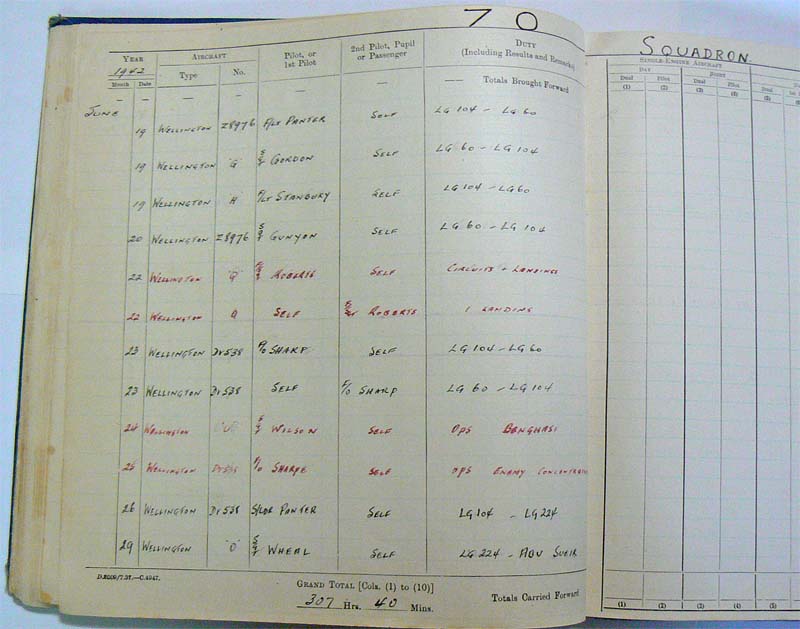 70
SQUADRON
YEAR AIRCRAFT Pilot, or 1st Pilot 2nd Pilot, Pupil or Passenger DUTY (Including Results and Remarks)
1942 Type No.
Month Date
— — — — — — — Totals Brought Forward
JUNE 19 WELLINGTON Z8976 F/LT PANTER SELF LG 104 - LG 60
19 WELLINGTON 'G' GORDON SELF LG 60 - LG 104
19 WELLINGTON 'H' P/LT STANBURY SELF LG 104 - LG60
20 WELLINGTON Z8976 SGT GUNYON SELF LG 60 - LG 104
22 WELLINGTON ROBERTS SELF CIRCUITS + LANDINGS
22 WELLINGTON SELF ROBERTS 1 LANDING
23 WELLINGTON DV538 P/O SHARP SELF LG 104 - LG 60
23 WELLINGTON DV538 SELF P/O SHARP LG 60 - LG 104
24 WELLINGTON SGT WILSON SELF OPS BENGHASI
25 WELLINGTON DV538 P/O SHARPE SELF OPS ENAMY CONCENTRA
26 WELLINGTON DV538 S/LDR PANTER SELF LG 104 - LG 224
29 WELLINGTON 'O' SGT WHEAL SELF LG 224 - ABU SUEIR
GRAND TOTAL [Cols. (1) to (10)]
307 Hrs. 40 Mins.
Totals Carried Forward
SINGLE-ENGINE AIRCRAFT
DAY NIGHT
Dual Pilot Dual Pilot Dual
(1) (2) (3) (4) (5)
(1) (2) (3) (4) (5)